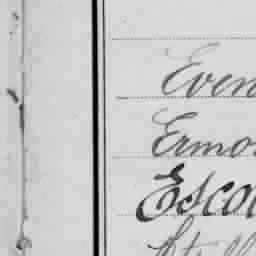 Even
Ermo
Esco